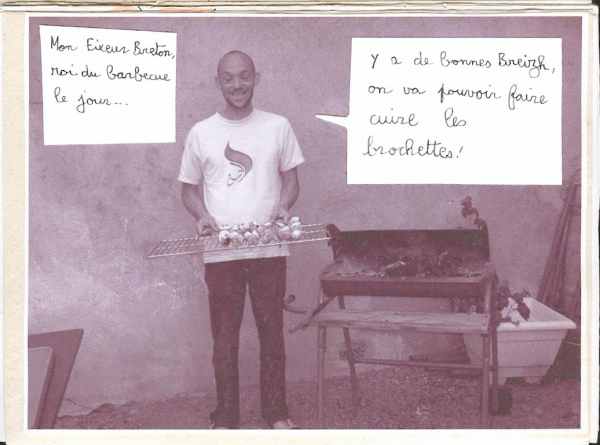 Mon Eixeur Breton,
roi du barbecue
le jour...
Y a de bonnes Breizh,
on va pouvoir faire
cuire les
brochettes!